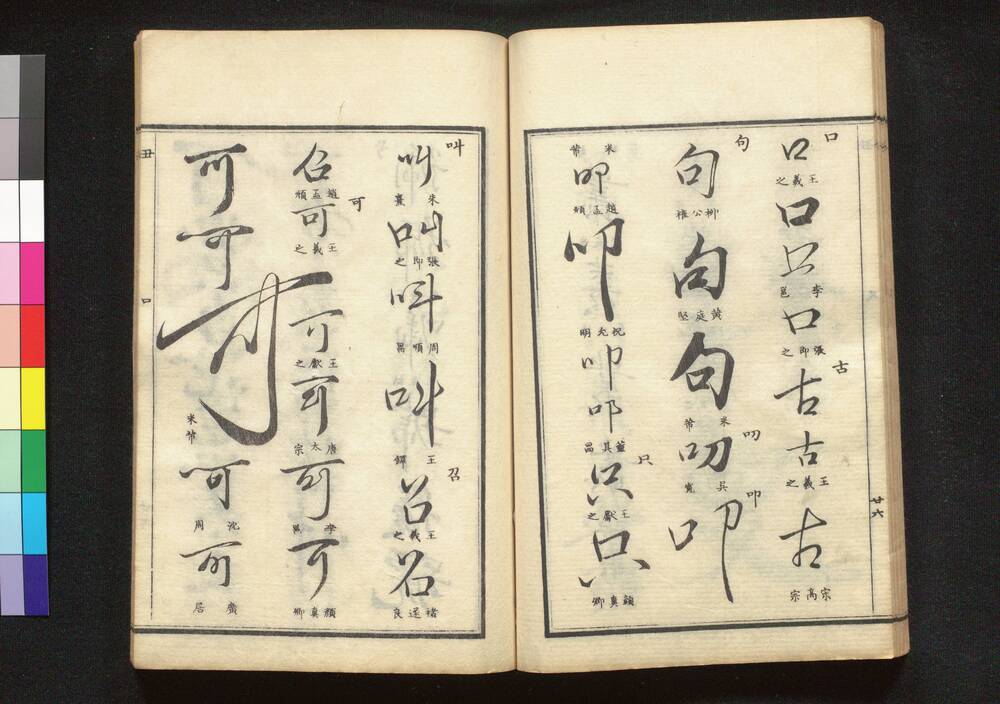 口
口
王羲之
口
口
李邕
口
張即之
古
古
古
王羲之
古
宋高宗
句
句
柳公權
句
黃庭堅
句
米芾
叨
叨
吳寬
叩
叩
米芾
叩
趙孟頫
叩
祝允明
叩
叩
董其昌
只
只
王獻之
只
顏真卿
廿六
叫
叫
叫
張即之
叫
周順昌
叫
王鐸
召
召
王羲之
召
褚遂良
召
趙孟頫
可
可
王羲之
可
王獻之
可
唐太宗
可
李邕
可
顏真卿
可
可
可
米芾
可
沈周
可
廣居
丑
口